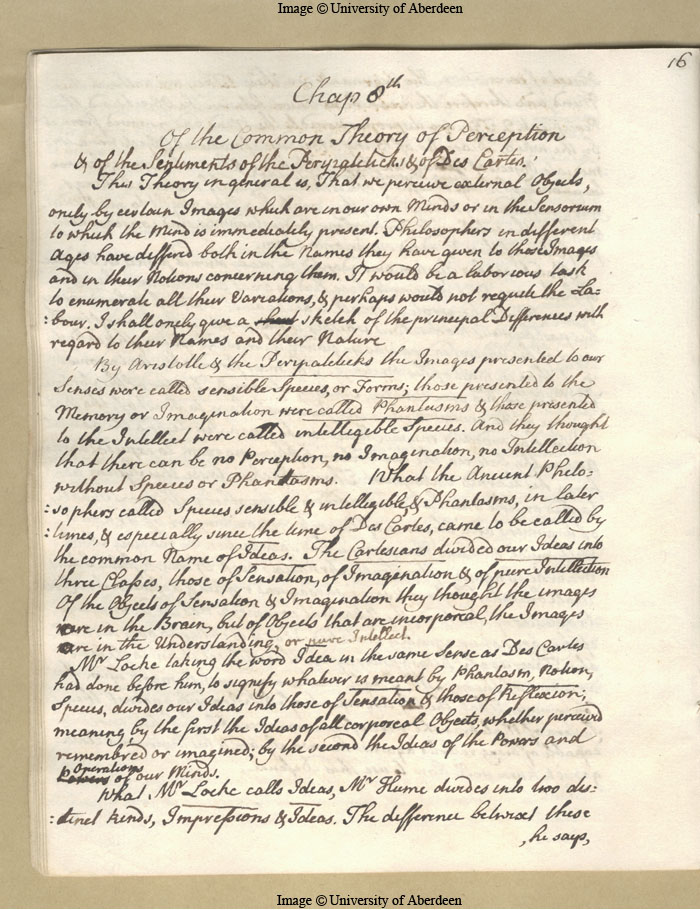 Image © University of Aberdeen
16
Chap 8th
Of the Common Theory of Perception
& of the Sentiments of the Peripateticks & of Des Cartes.
This Theory in general is, That we perceive external Objects,
onely by certain Images which are in our own Minds or in the Sensorium
to which the Mind is immediately present. Philosophers in different
Ages have differed both in the Names they have given to those Images
and in their Notions concerning them. It would be a laborious task
to enumerate all their Variations, & perhaps would not requite the La-
:bour. I shall onely give a sketch of the principal Differences with
regard to their Names and their Nature
By Aristotle & the Peripateticks the Images presented to our
Senses were called sensible Species, or Forms; those presented to the
Memory or Imagination were called Phantasms & those presented
to the Intellect were called intelligible Species. And they thought
that there can be no Perception, no Imagination, no Intellection
without Species or Phantasms. What the Ancient Philo-
:sophers called Species sensible & intelligible, & Phantasms, in later
:times, & especially since the time of Des Cartes, came to be called by
the common Name of Ideas. The Cartesians divided our Ideas into
three Classes, those of Sensation, of Imagination & of pure Intellection
Of the Objects of Sensation & Imagination they thought the images
are in the Brain, but of Objects that are incorporeal, the Images
are in the Understanding, or pure Intellect.
Mr Locke taking the word Idea in the same Sense as Des Cartes
had done before him, to signify whatever is meant by Phantasm, Notion,
Species, divides our Ideas into those of Sensation & those of Reflexion;
meaning by the first the Ideas of all corporeal Objects, whether perceived
remembered or imagined; by the second the Ideas of the Powers and
Operations
of our Minds.
What Mr Locke calls Ideas, Mr Hume divides into two dis-
:tinct kinds, Impressions & Ideas. The difference betwixt these
he says,
Image © University of Aberdeen